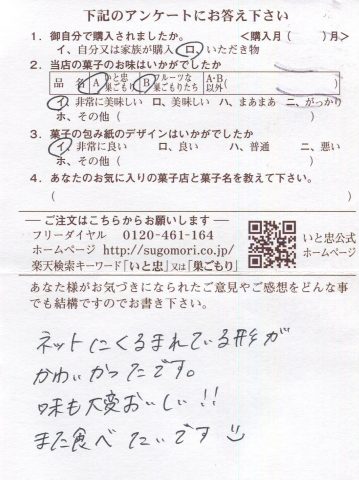 下記のアンケートにお答え下さい
1．御自分で購入されましたか。 <購入月（　　）月>
イ、自分又は家族が購入 ロ、いただき物
2．当店の菓子のお味はいかがでしたか
品名 A いと忠巣ごもり B フルーツな巣ごもりたち A・B以外（　　　）
イ、非常に美味しい ロ、美味しい ハ、まあまあ ニ、がっかり
ホ、その他（　　　）
3．菓子の包み紙のデザインはいかがでしたか
イ、非常に良い ロ、良い ハ、普通 ニ、悪い
ホ、その他（　　　）
4．あなたのお気に入りの菓子店と菓子名を教えて下さい。
（　　　）
ご注文はこちらからお願いします
フリーダイヤル 0120-461-164
ホームページ http://sugomori.co.jp/
楽天検索キーワード「いと忠」又は「巣ごもり」
いと忠公式
ホームページ
あなた様がお気づきになられたご意見やご感想をどんな事
でも結構ですのでお書き下さい。
ネットにくるまれている形が
かわいかったです。
味も大変おいしい!!
また食べたいです